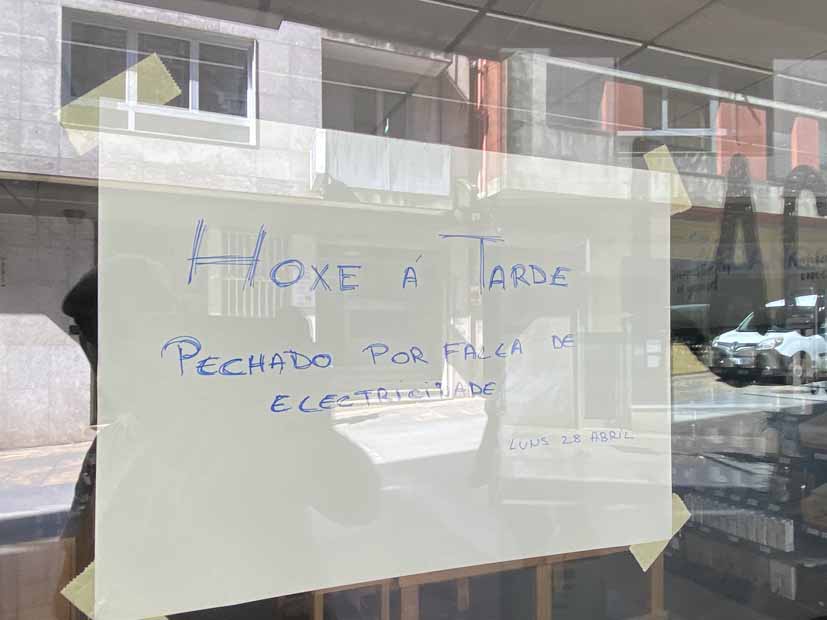 HOXE Á TARDE
PECHADO POR FALCA DE
ELECTRICIDADE
LUNS 28 ABRIL